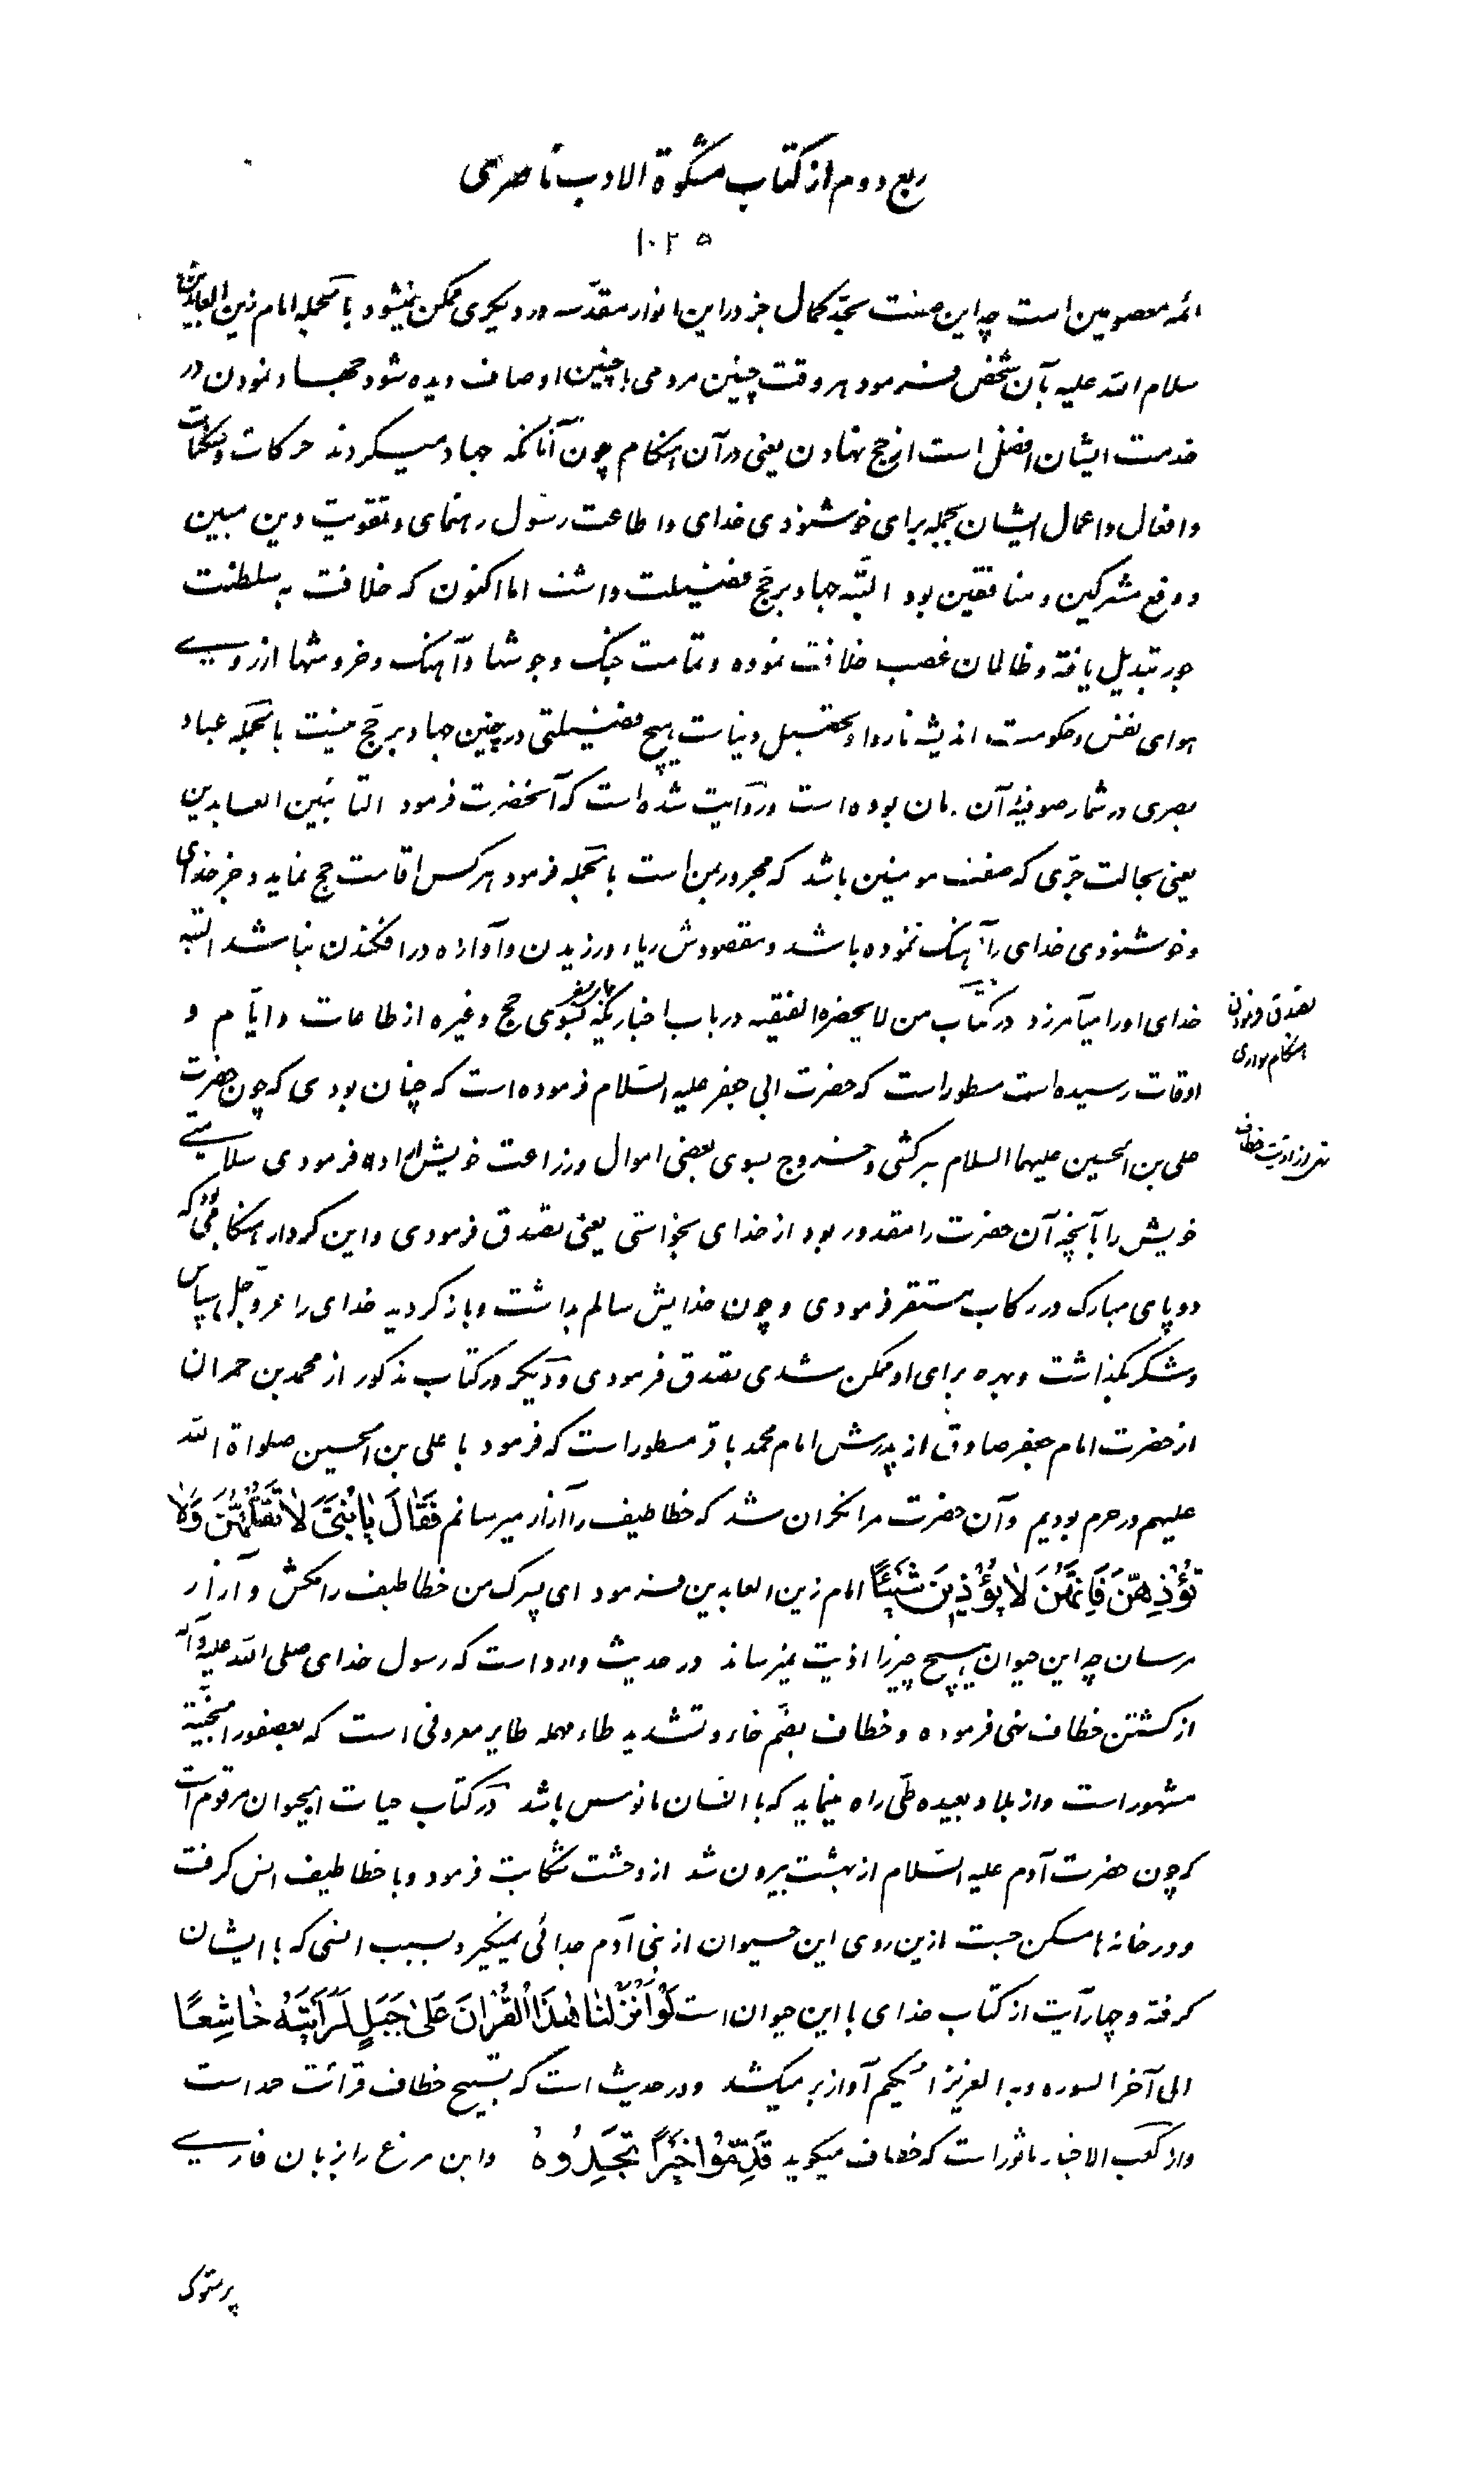 ربع دوم از کتاب مشکوة الادب ناصری
۱۰۲۵
ائمه معصومین است چه این صفت بحد کمال جز در این انوار مقدّسه در دیگری ممکن نمیشود بالجمله امام زین العابدین
سلام الله علیه بآن شخص فرمود هر وقت چنین مردمی با چنین اوصاف دیده شود جهاد نمودن در
خدمت ایشان افضل است از حج نهادن یعنی در آن هنگام چون آنانکه جهاد میکردند حرکات و سکنات
و افعال و اعمال ایشان بجمله برای خوشنودی خدای و اطاعت رسول رهنمای و تقویت دین مبین
و دفع مشرکین و منافقین بود البته جهاد بر حج فضیلت داشت اما اکنون که خلافت به سلطنت
جور تبدیل یافته و ظالمان غصب خلافت نموده و تمامت جنک و جوشها و آهنک و خروشها از روی
هوای نفس و حکومت اندیشه ناروا و تحصیل دنیاست هیچ فضیلتی در چنین جهاد بر حج نیست بالجمله عباد
بصری در شمار صوفیۀ آن زمان بوده است و روایت شده است که آنحضرت فرمود التائبین العابدین
یعنی بحالت جرّی که صفت مومنین باشد که مجرور بمن است بالجمله فرمود هر کس اقامت حج نماید و جز خدای
و خوشنودی خدای را آهنک ننموده باشد و مقصودش ریاء ورزیدن و آوازه درافکندن نباشد البته
خدای او را میآمرزد در کتاب من لا یحضره الفقیه در باب اخباریکه بسوی حج و غیره از طاعات و ایّام و
اوقات رسیده است مسطور است که حضرت ابی جعفر علیه السّلام فرموده است که چنان بودی که چون حضرت
علی بن الحسین علیهما السلام برکشی و خروج بسوی بعضی اموال و زراعت خویش اراده فرمودی سلامتی
خویش را بآنچه آن حضرت را مقدور بود از خدای بخواستی یعنی تصدق فرمودی و این کردار هنگامی بود که
دو پای مبارک در رکاب مستقر فرمودی و چون خدایش سالم بداشت و بازکردید خدای را عزّ و جل سپاس
و شکر بگذاشت و بهره برای او ممکن شدی تصدق فرمودی و دیگر در کتاب مذکور از محمد بن حمران
از حضرت امام جعفر صادق از پدرش امام محمد باقر مسطور است که فرمود با علی بن الحسین صلواة الله
علیهم در حرم بودیم و آن حضرت مرا نگران شد که خطاطیف را آزار میرسانم فَقَالَ یا بُنَیَّ لا تَقْتُلْهُنَّ وَلا
تُؤْذِهِنَّ فَاِنَّهُنَّ لا یُؤْذِینَ شَیْئًا امام زین العابدین فرمود ای پسرک من خطاطیف را مکش و آزار
مرسان چه این حیوان هیچ چیز را اذیت نمیرساند در حدیث وارد است که رسول خدای صلی الله علیه و آله
از کشتن خطاف نهی فرموده و خطاف بضمّ خاء و تشدید طاء مهمله طایر معروفی است که بعصفور الجنّة
مشهور است و از بلاد بعیده طیّ راه مینماید که با انسان مانوس باشد در کتاب حیات الحیوان مرقوم است
که چون حضرت آدم علیه السّلام از بهشت بیرون شد از وحشت شکایت فرمود و با خطاطیف انس کرفت
و در خانه ها مسکن جست ازین روی این حیوان از بنی آدم جدائی نمیگیرد بسبب انسی که با ایشان
کرفته و چهار آیت از کتاب خدای با این حیوان است لَوْ اَنْزَلْنا هٰذَا الْقُرْآنَ عَلی جَبَلٍ لَرَاَیْتَهُ خاشِعًا
الی آخر السوره و به العزیز الحکیم آواز بر میکشد و در حدیث است که تسبیح خطاف قرائت حمد است
و از کعب الاخبار ماثور است که خطاف میکوید قَدِّمُوا خَیْرًا تَجِدُوهُ و این مرغ را بزبان فارسی
تصدق فرمودن
هنگام سواری
نهی از اذیت خطاف
پرستوک